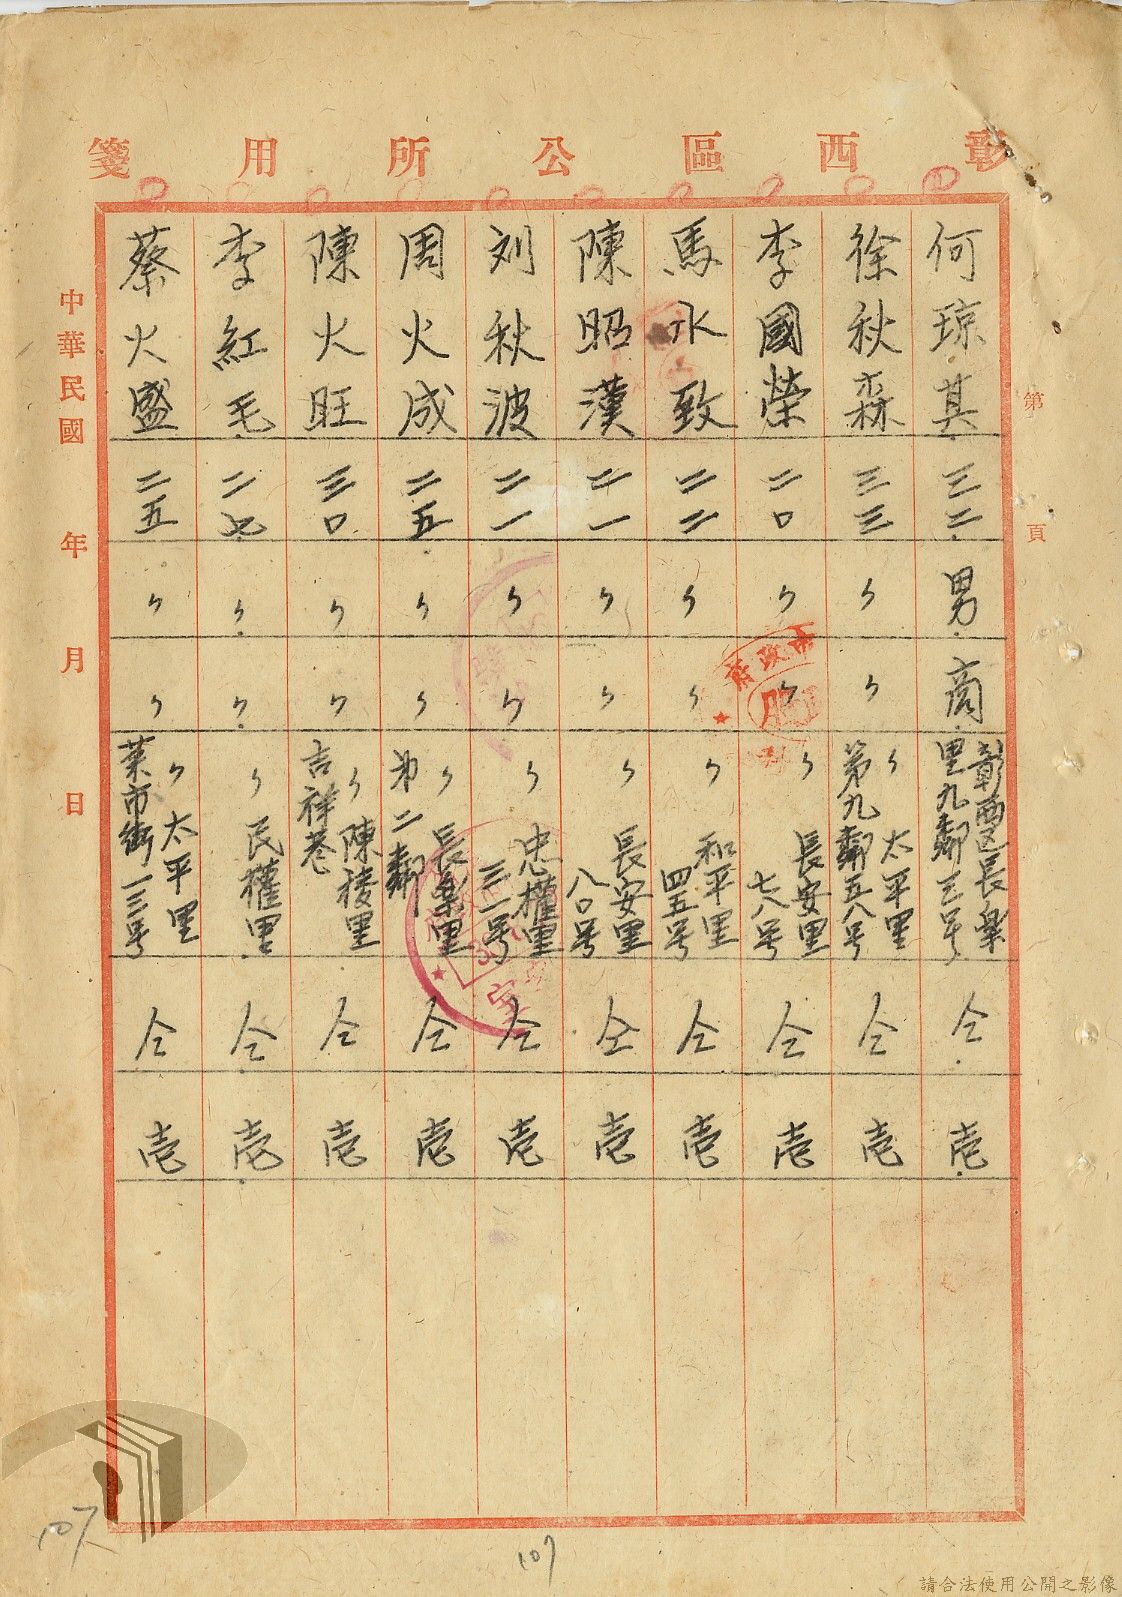 彰西區公所用箋
第 頁
何琼其 三二 男 商 彰西区長樂里九鄰三号 仝 壱
徐秋森 三三 〃 〃 〃太平里第九鄰五八号 仝 壱
李國榮 二〇 〃 〃 〃長安里七八号 仝 壱
馬水致 二二 〃 〃 〃和平里四五号 仝 壱
陳昭漢 二一 〃 〃 〃長安里八〇号 仝 壱
刘秋波 二一 〃 〃 〃忠權里三一号 仝 壱
周火成 二五 〃 〃 〃長樂里第二鄰 仝 壱
陳火旺 三〇 〃 〃 〃陳稜里吉祥巷 仝 壱
李紅毛 二七 〃 〃 〃民權里 仝 壱
蔡火盛 二五 〃 〃 〃太平里菜市街一三号 仝 壱
中華民國 年 月 日
107
107
請合法使用公開之影像